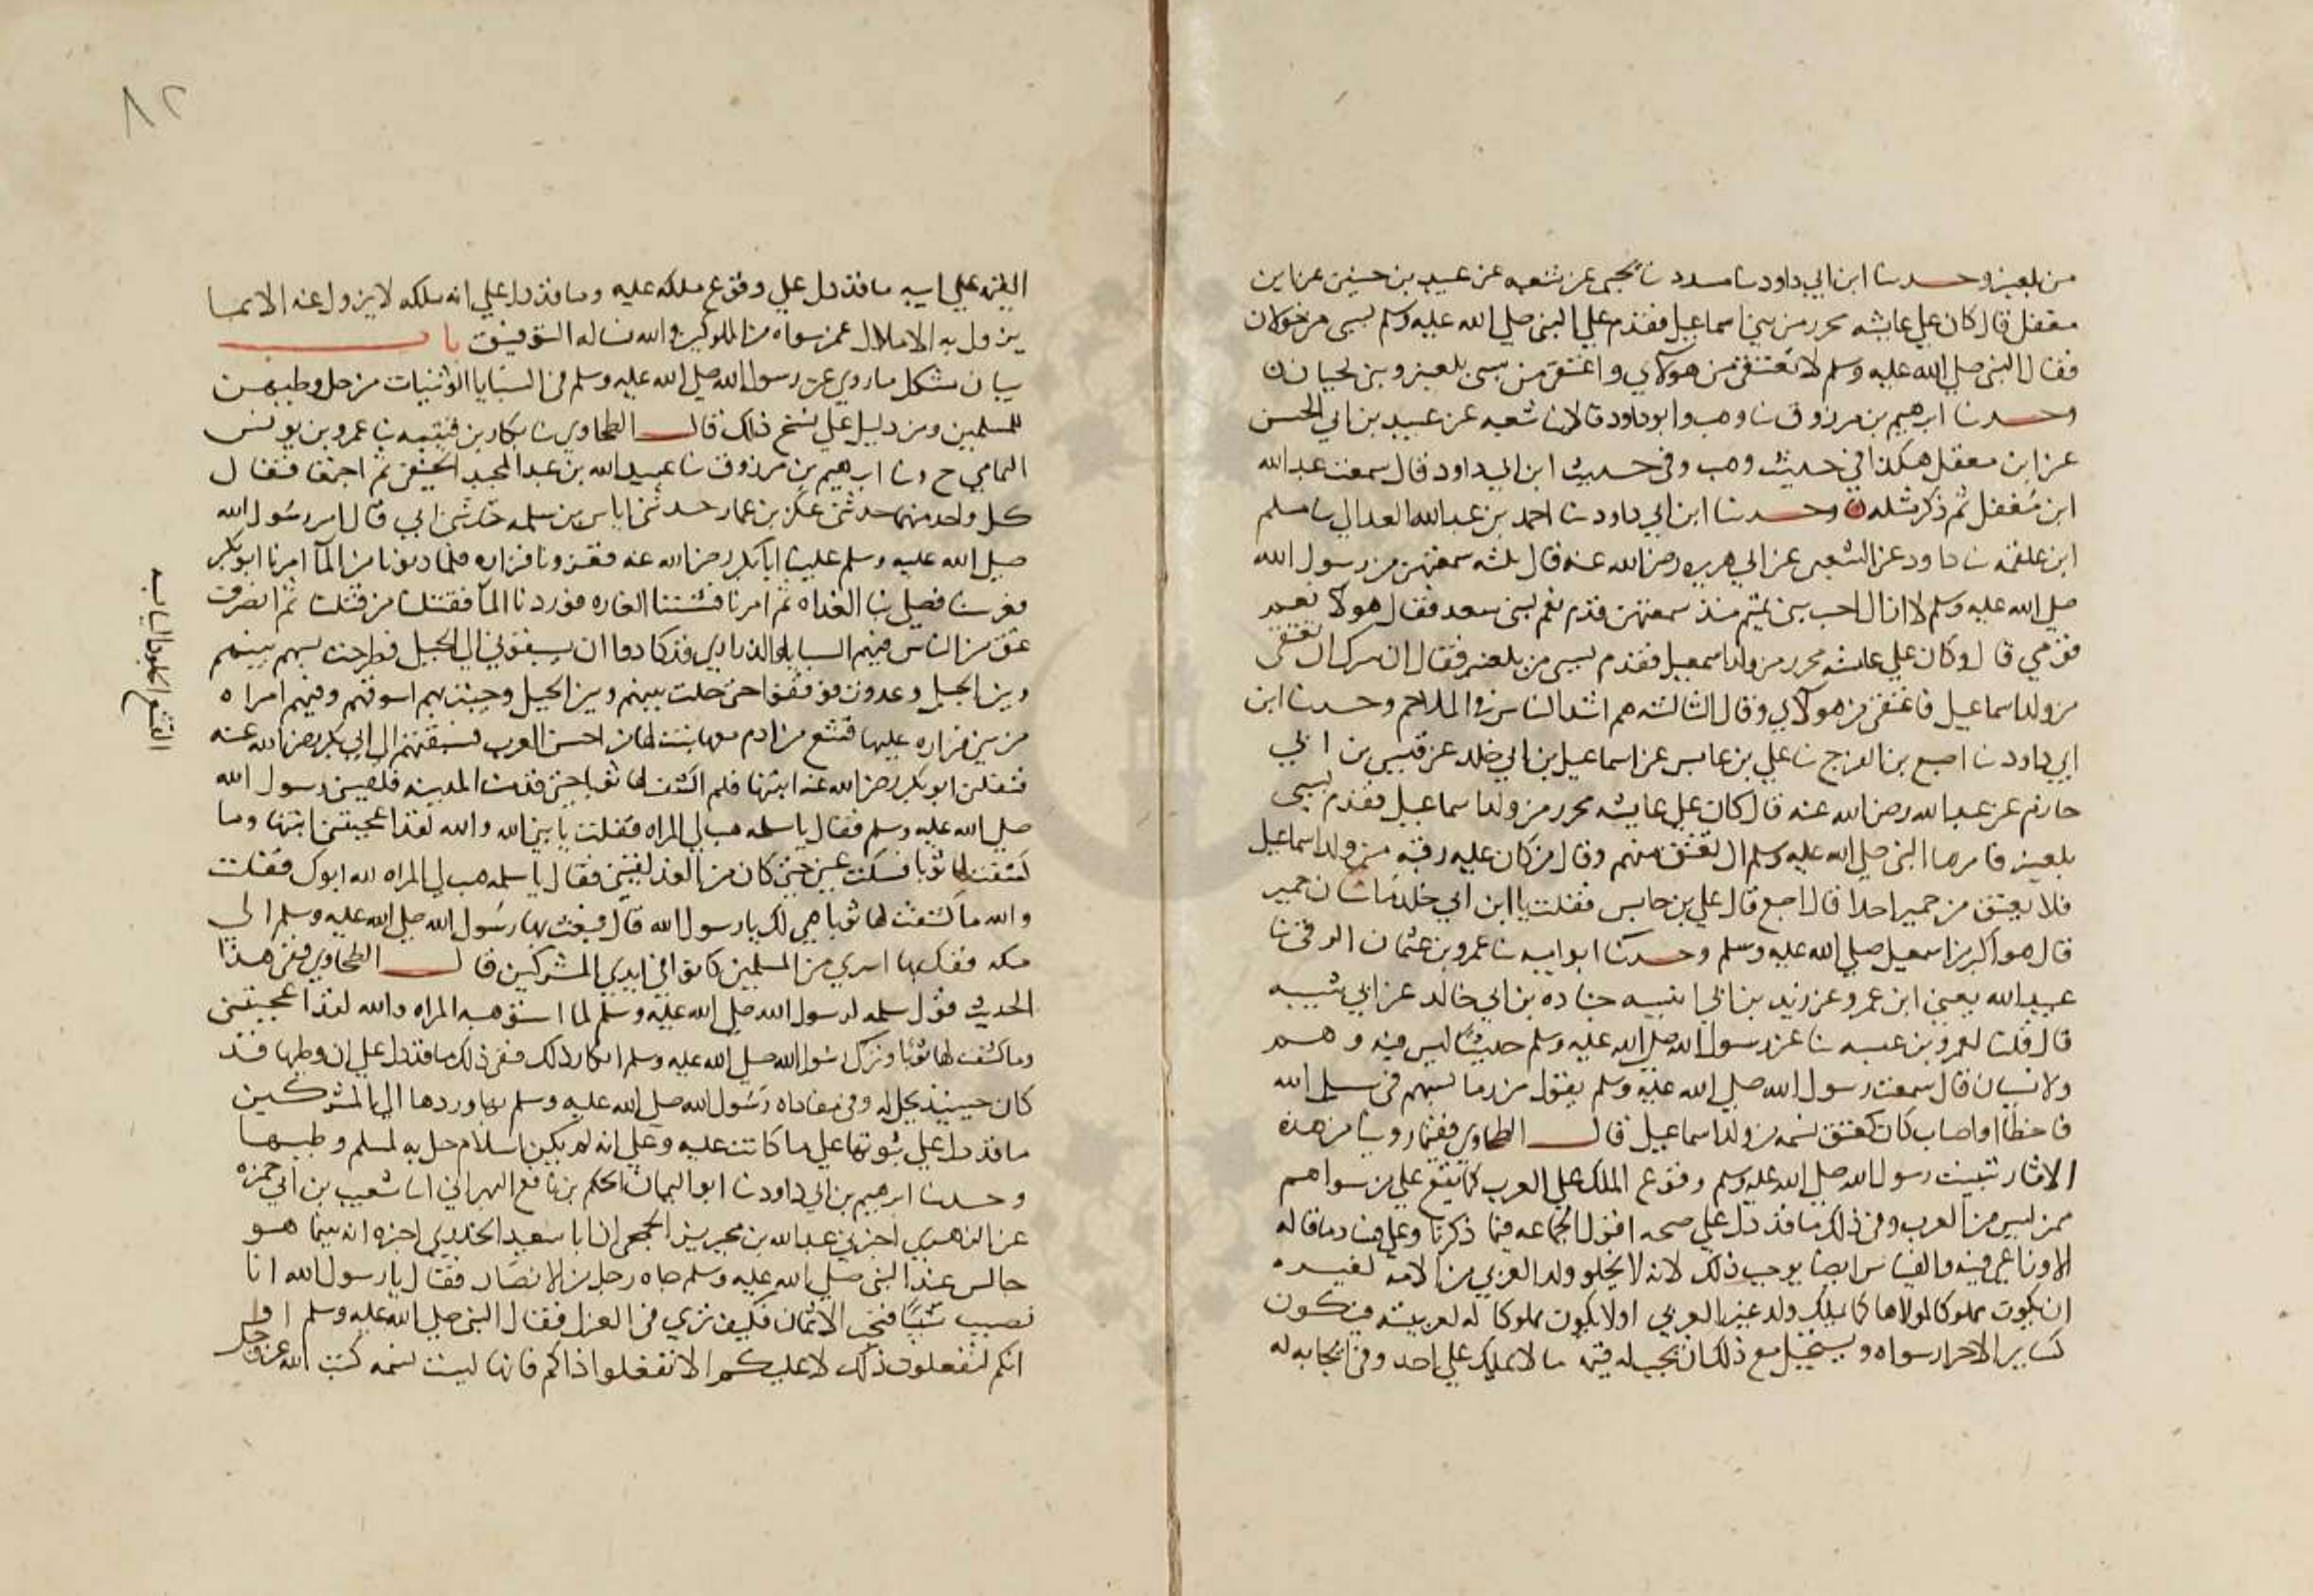 من بلعنبر وحدثنا ابن ابي داود ثنا مسدد ثنا يحيى عن شعبه عن عبيد بن حسن عن ابن
معقل قال كان على عايشه محرر من بني اسماعيل فقدم على النبي صلى الله عليه وسلم بسبي من خولان
فقال النبي صلى الله عليه وسلم لا تعتقي من هولاي واعتقي من سبي بلعنبر وبني لحيان
وحدثنا ابرهيم بن مرزوق ثنا وهب وابو داود قالا ثنا شعبه عن عبيد بن ابي الحسن
عن ابن معقل هكذا في حديث وهب وفي حديث ابن ابي داود قال سمعت عبد الله
ابن مغفل ثم ذكر مثله وحدثنا ابن ابي داود ثنا احمد بن عبد الله الغداني ثنا مسلم
ابن علقمه ثنا داود عن الشعبي عن ابي هريره رضي الله عنه قال ثلثه سمعتهن من رسول الله
صلى الله عليه وسلم لا ازال احب بني تميم منذ سمعتهن قدم نعم لبني سعد فقال هولا نعم
قومي قال وكان على عايشه محرر من ولد اسمعيل فقدم بسبي من بلعنبر فقال ان سرك ان تعتقي
من ولد اسماعيل فاعتقي من هولاي وقال الثالثه هم اشد الناس في الملاحم وحدثنا ابن
ابي داود ثنا اصبغ بن الفرج ثنا علي بن عابس عن اسماعيل بن ابي خلد عن قيس بن ابي
حازم عن عبد الله رضي الله عنه قال كان على عايشه محرر من ولد اسماعيل فقدم بسبي
بلعنبر فامرها النبي صلى الله عليه وسلم ان تعتق منهم وقال من كان عليه رقبه من ولد اسماعيل
فلا يعتق من حمير احدا قال اصبغ قال علي بن عابس فقلت يا ابن ابي خلد ما شان حمير
قال هو اكبر من اسمعيل صلى الله عليه وسلم وحدثنا ابو اميه ثنا عمرو بن عثمان الرقي ثنا
عبيد الله يعني ابن عمرو عن زيد بن ابي انيسه جناده بن ابي خالد عن ابي شيبه
قال قلت لعمرو بن عبسه ثنا عن رسول الله صلى الله عليه وسلم حديثا ليس فيه وهم
ولا نسيان قال سمعت رسول الله صلى الله عليه وسلم يقول من رما بسهم في سبيل الله
فاخطا او اصاب كان كعتق نسمه من ولد اسماعيل قال الطحاوي ففيما روينا من هذه
الاثار تثبيت رسول الله صلى الله عليه وسلم وقوع الملك على العرب كما يقع على من سواهم
ممن ليس من العرب وفي ذلك ما قد دل على صحه اقول الجماعه فيما ذكرنا وعلى فساد ما قاله
الاوزاعي فيه والقياس ايضا يوجب ذلك لانه لا يخلو ولد العربي من الامه لغيره
ان يكون مملوكا لمولاها كما يملك ولد غير العربي او لا يكون مملوكا له لعربيته فيكون
كساير الاحرار سواه ويستحيل مع ذلك ان يجب له قيمه ما لا يملك على احد وفي ايجابه له
٨٢
القيمه على ابيه ما قد دل على وقوع ملكه عليه وما قد دل على انه ملكه لا يزول عنه الا بما
يزول به الاملاك عمن سواه من المملوكين والله نساله التوفيق باب
بيان مشكل ما روي عن رسول الله صلى الله عليه وسلم في السبايا الوثنيات من حل وطيهن
للمسلمين ومن دليل على نسخ ذلك قال الطحاوي ثنا بكار بن قتيبه ثنا عمرو بن يونس
اليمامي ح وثنا ابرهيم بن مرزوق ثنا عبيد الله بن عبد المجيد الحنفي ثم اجمعا فقال
كل واحد منهما حدثني عكرمه بن عمار حدثني اياس بن سلمه حدثني ابي قال امر رسول الله
صلى الله عليه وسلم علينا ابا بكر رضي الله عنه فغزونا فزاره فلما دنونا من الما امرنا ابو بكر
فعرسنا فصلى بنا الغداه ثم امرنا فشننا الغاره فوردنا الما فقتلنا من قتلنا ثم انصرفت
عنق من الناس فيهم السبايا والذراري قد كادوا ان يسبقوني الى الجبل فطرحت بسهم بينهم
وبين الجبل وعدوت فوقفوا حتى حلت بينهم وبين الجبل وجيت بهم اسوقهم وفيهم امراه
من بني فزاره عليها قشع من ادم معها بنت لها من احسن العرب فسقتهم الى ابي بكر رضي الله عنه
فنفلني ابو بكر رضي الله عنه ابنتها فلم اكشف لها ثوبا حتى قدمت المدينه فلقيني رسول الله
صلى الله عليه وسلم فقال يا سلمه هب لي المراه فقلت يا نبي الله والله لقد اعجبتني ابنتها وما
كشفت لها ثوبا فسكت عني حتى كان من الغد لقيني فقال يا سلمه هب لي المراه لله ابوك فقلت
والله ما كشفت لها ثوبا هي لك يا رسول الله قال فبعث بها رسول الله صلى الله عليه وسلم الى
مكه ففك بها اسرى من المسلمين كانوا في ايدي المشركين قال الطحاوي ففي هذا
الحديث قول سلمه لرسول الله صلى الله عليه وسلم لما استوهبه المراه والله لقد اعجبتني
وما كشفت لها ثوبا وترك رسول الله صلى الله عليه وسلم انكار ذلك ففي ذلك ما قد دل على ان وطيها قد
كان حينيذ يحل له وفي مفاداه رسول الله صلى الله عليه وسلم بها وردها الى المشركين
ما قد دل على ثبوتها على ما كانت عليه وعلى انه لم يكن اسلام حل به لمسلم وطيها
وحدثنا ابرهيم بن ابي داود ثنا ابو اليمان الحكم بن نافع البهراني انا شعيب بن ابي حمزه
عن الزهري اخبرني عبد الله بن محيريز الجمحي ان ابا سعيد الخدري اخبره انه بينما هو
جالس عند النبي صلى الله عليه وسلم جاه رجل من الانصار فقال يا رسول الله انا
نصيب سبيا فنحب الاثمان فكيف ترى في العزل فقال النبي صلى الله عليه وسلم او
انكم لتفعلون ذلك لا عليكم الا تفعلوا ذاكم فانها ليست نسمه كتب الله عز وجل
القشع الجلود اليابسه